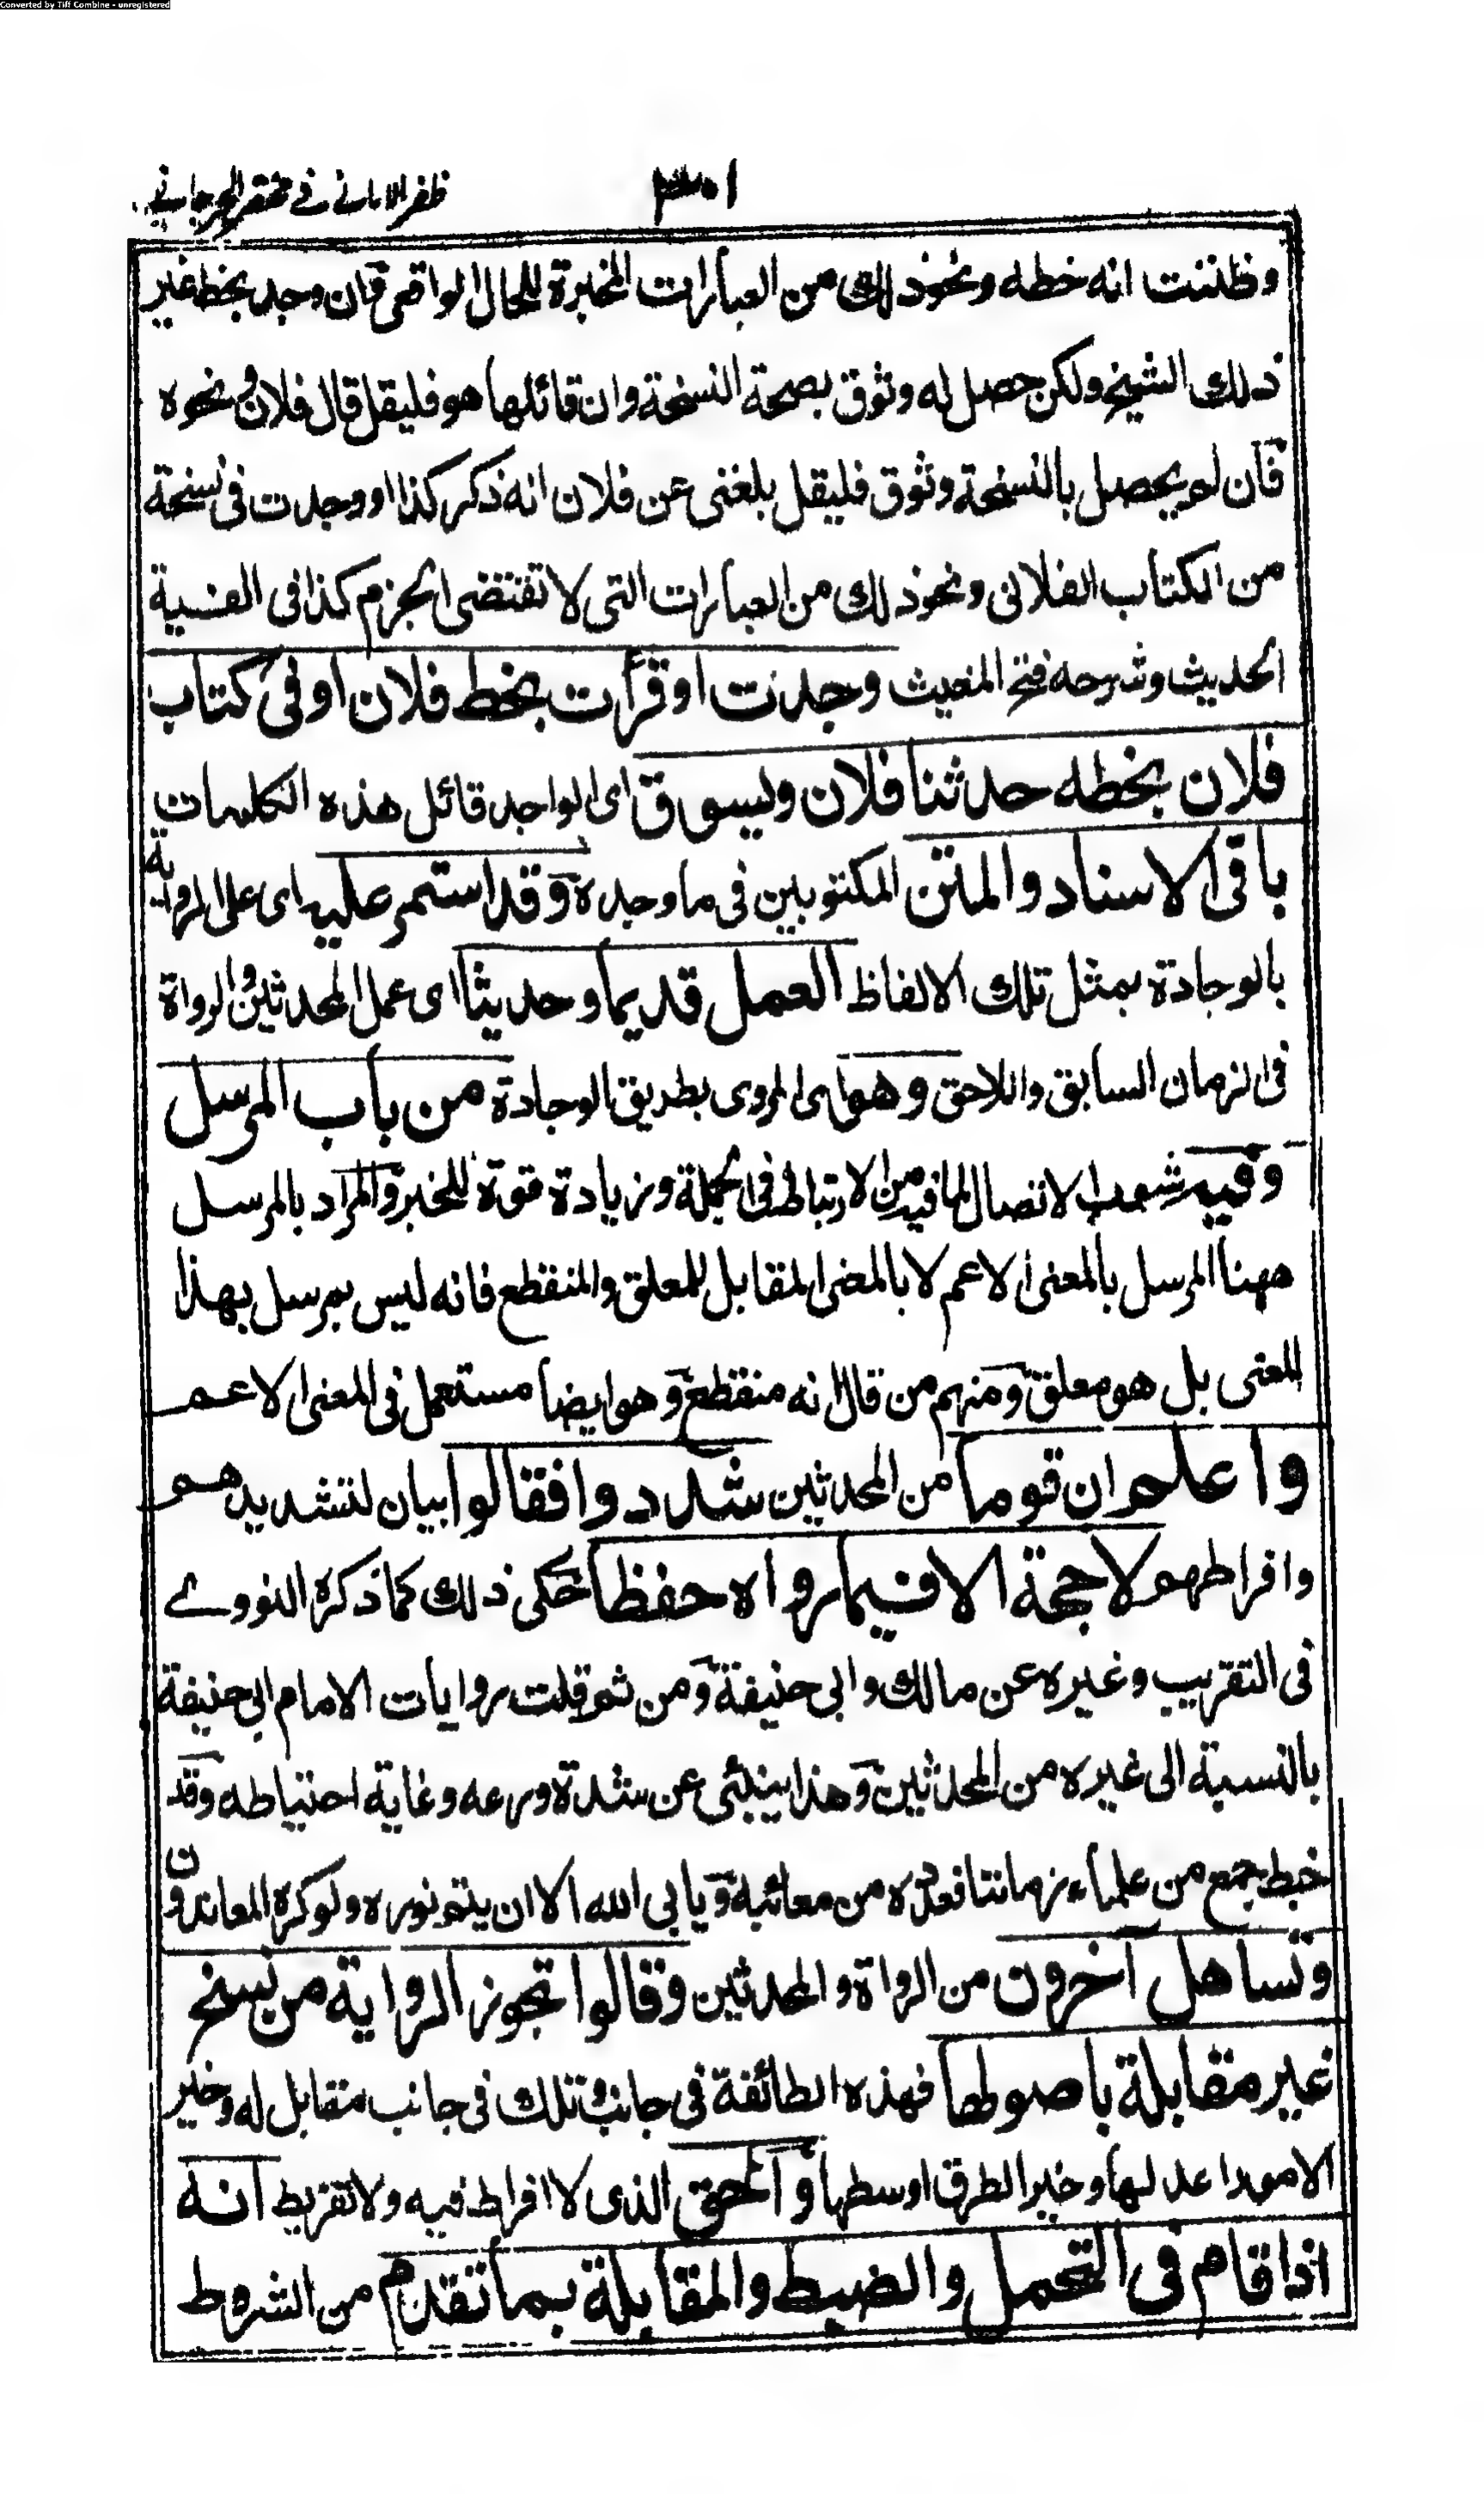 Converted by Tiff Combine - unregistered
٣٠١ ظفر الامانی فی مختصر الجرجانی
وظننت انه خطه ونحوذلك من العبارات المخبرة للحال الواقعی فان وجد بخط غیر
ذلك الشیخ ولکن حصل له وثوق بصحة النسخة وان قائلها هو فلیقل قال فلان ونحوه
فان لم یحصل بالنسخة وثوق فلیقل بلغنی عن فلان انه ذکر کذا او وجدت فی نسخة
من الکتاب الفلانی ونحوذلك من العبارات التی لا تقتضی الجزم کذا فی الفیة
الحدیث وشرحه فتح المغیث وجدت او قرأت بخط فلان او فی کتاب
فلان بخطه حدثنا فلان ویسوق ای الواجد قائل هذه الکلمات
باقی الاسناد والمتن المکتوبین فی ما وجده وقد استمر علیه ای علی الروایة
بالوجادة بمثل تلك الالفاظ العمل قدیما وحدیثا ای عمل المحدثین والرواة
فی الزمان السابق واللاحق وهو ای المروی بطریق الوجادة من باب المرسل
وفیه شوب الاتصال لما فیه من الارتباط فی الجملة وزیادة قوة للخبر والمراد بالمرسل
ههنا المرسل بالمعنی الاعم لا بالمعنی المقابل للمعلق والمنقطع فانه لیس بمرسل بهذا
المعنی بل هو معلق ومنهم من قال انه منقطع وهو ایضا مستعمل فی المعنی الاعم
واعلم ان قوما من المحدثین شددوا فقالوا بیان لتشدیدهم
وافراطهم لا حجة الا فیما رواه حفظا حکی ذلك کما ذکره النووے
فی التقریب وغیره عن مالك وابی حنیفة ومن ثم قلت روایات الامام ابی حنیفة
بالنسبة الی غیره من المحدثین وهذا ینبئی عن شدة ورعه وغایة احتیاطه وقد
خبط جمع من علماء زماننا فعدوه من معائبه ویابی الله الا ان یتم نوره ولو کره المعاندون
وتساهل آخرون من الرواة والمحدثین وقالوا تجوز الروایة من نسخ
غیر مقابلة باصولها فهذه الطائفة فی جانب وتلك فی جانب مقابل له وخیر
الامور اعدلها وخیر الطرق اوسطها والحق الذی لا افراط فیه ولا تفریط انه
اذا قام فی التحمل والضبط والمقابلة بما تقدم من الشروط